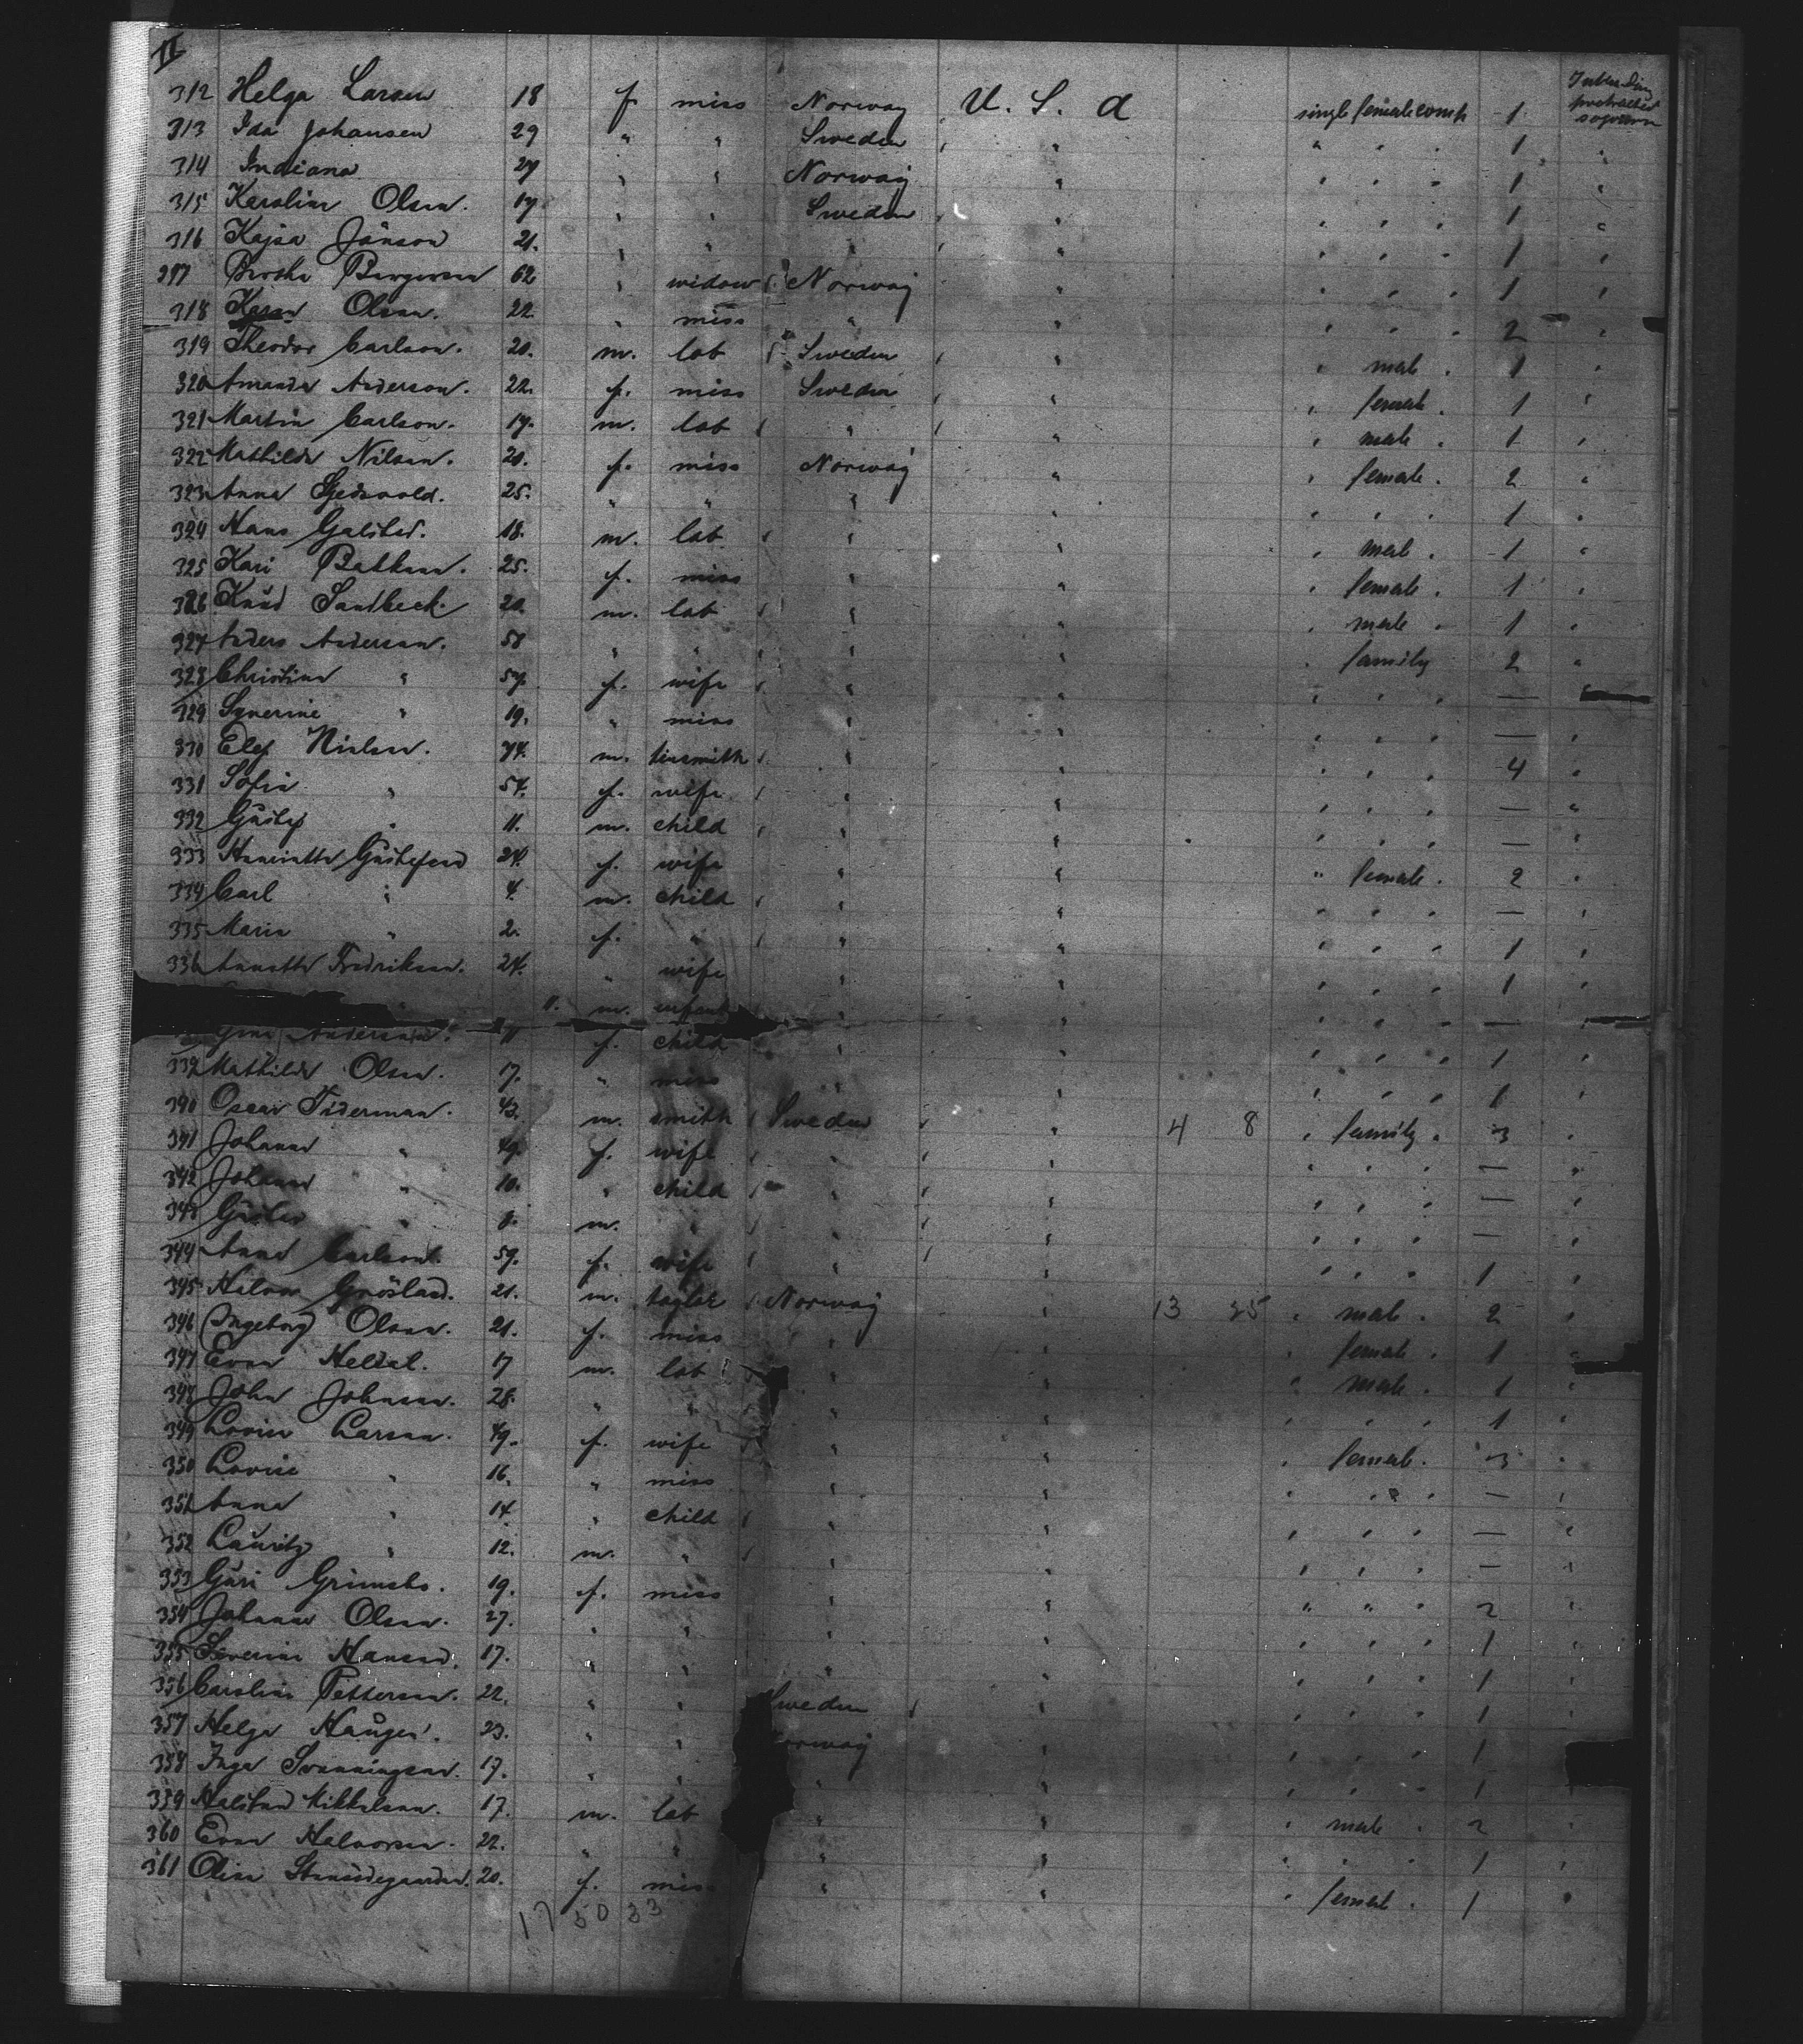 II
312 Helga Larsen 18 f miss Norway U. S. A single female comp 1 Intending protracted sojourn
313 Ida Johansen 29 " " Sweden " " " " 1 "
314 Indiana 29 " " Norway " " " " 1 "
315 Karoline Olsen. 19 " " Sweden " " " " 1 "
316 Kajsa Jönson 21. " " " " " " " 1 "
317 62 " widow Norway " " " " 1 "
318 Karen Olsen. 22. " miss " " " " " 2 "
319 Theodor Carlson. 20. m. lab Sweden " " male " 1 "
320 Amanda Anderson. 22. f. miss Sweden " " female . 1 "
321 Martin Carlson. 19. m. lab " " " male " 1 "
322 Mathilde Nilsen. 20. f. miss Norway " " female . 2 "
323 Anna 25. " " " " " " " 1 "
324 Hans 18. m. lab " " " male . 1 "
325 Kari 25. f. miss " " " female . 1 "
326 Knud Sandbeck. 20. m. lab " " " male " 1 "
327 Anders Andersen. 58 " " " " " family 2 "
328 Christine " 57. f. wife " " " " " — "
329 Synerine " 19. " miss " " " " " — "
330 Elef Nielsen. 74. m. tinsmith " " " " " 4 "
331 Sofie " 54. f. wife " " " " " — "
332 Gustef " 11. m. child " " " " " — "
333 Henriette Gustefsen 24. f. wife " " " female . 2 "
334 Carl " 4. m. child " " " " " — "
335 Marie " 2. f. " " " " " " 1 "
336 Annette Fredriksen. 24. " wife " " " " " 1 "
11. m. infant " " " " " — "
Andersen. 11 f. child " " " " 1 "
339 Mathilde Olsen. 17. " miss " " " " " 1 "
340 Oscar Tiderman. 43. m. smith Sweden " 4 8 " family " 3 "
341 Johanna " 49. f. wife " " " " " — "
342 Johanna " 10. " child " " " " " — "
343 Gustav " 8. m. " " " " " " — "
344 Anna Carlson. 59. f. wife " " " " " 1 "
345 Halvor Gröslad. 21. m. taylor Norway " 13 25 " male . 2 "
346 (Ingeborg) Olsen. 21. f. miss " " " female . 1 "
347 Even Heldal. 17 m. lab " " " male . 1 "
348 John Johnsen. 28. " " " " " " " 1 "
349 Lovise Larsen. 49. f. wife " " " female . 3 "
350 Lovise " 16. " miss " " " " " — "
351 Anna " 14. " child " " " " " — "
352 Lauritz " 12. m. " " " " " " — "
353 Guri 19. f. miss " " " " " 2 "
354 Johanne Olsen. 27. " " " " " " " 1 "
355 Severine Hansen. 17. " " " " " " " 1 "
356 Caroline Pettersen. 22. " " Sweden " " " " 1 "
357 Helga Haugen. 23. " " Norway " " " " 1 "
358 Inga Svenningsen. 17. " " " " " " " 1 "
359 Halstein Mikkelsen. 17. m. lab " " " male . 2 "
360 Even Halvorsen. 22. " " " " " " " 1 "
361 Olina 20. f. miss " " " female . 1 "
17 50 33